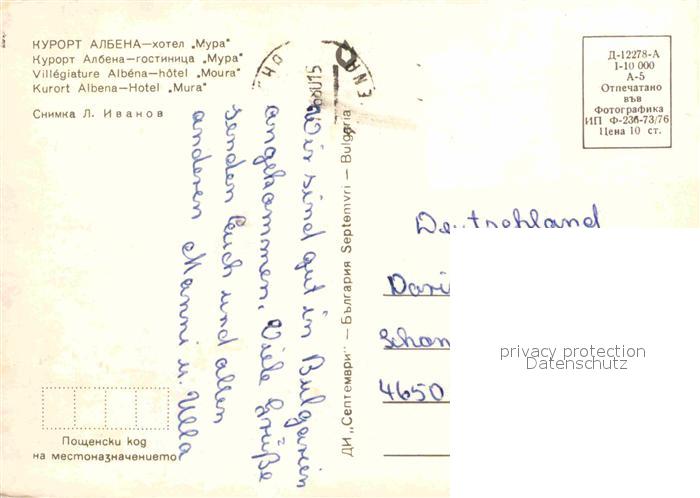 КУРОРТ АЛБЕНА—хотел „Мура"
Курорт Албена—гостиница „Мура"
Villégiature Albéna—hôtel „Moura"
Kurort Albena—Hotel „Mura"
Снимка Л. Иванов
Д-12278-А
I-10 000
А-5
Отпечатано
във
Фотографика
ИП Ф-236-73/76
Цена 10 ст.
Wir sind gut in Bulgarien
angekommen. Viele Grüße
senden Euch und allen
anderen Manni u. Ulla
ДИ „Септември" — България Septemvri — Bulgaria
Deutschland
4650
privacy protection
Datenschutz
Пощенски код
на местоназначението